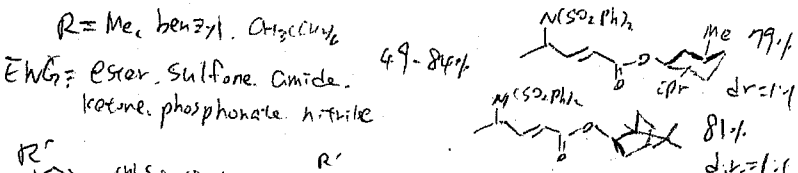 R = Me, benzyl,
EWG = ester, sulfone, amide,
ketone, phosphonate, nitrile
49-84%
N(SO2Ph)2
O
O
Me
iPr
79%
dr=1:1
N(SO2Ph)2
O
O
81%
d.r.=1:1
R'
R'